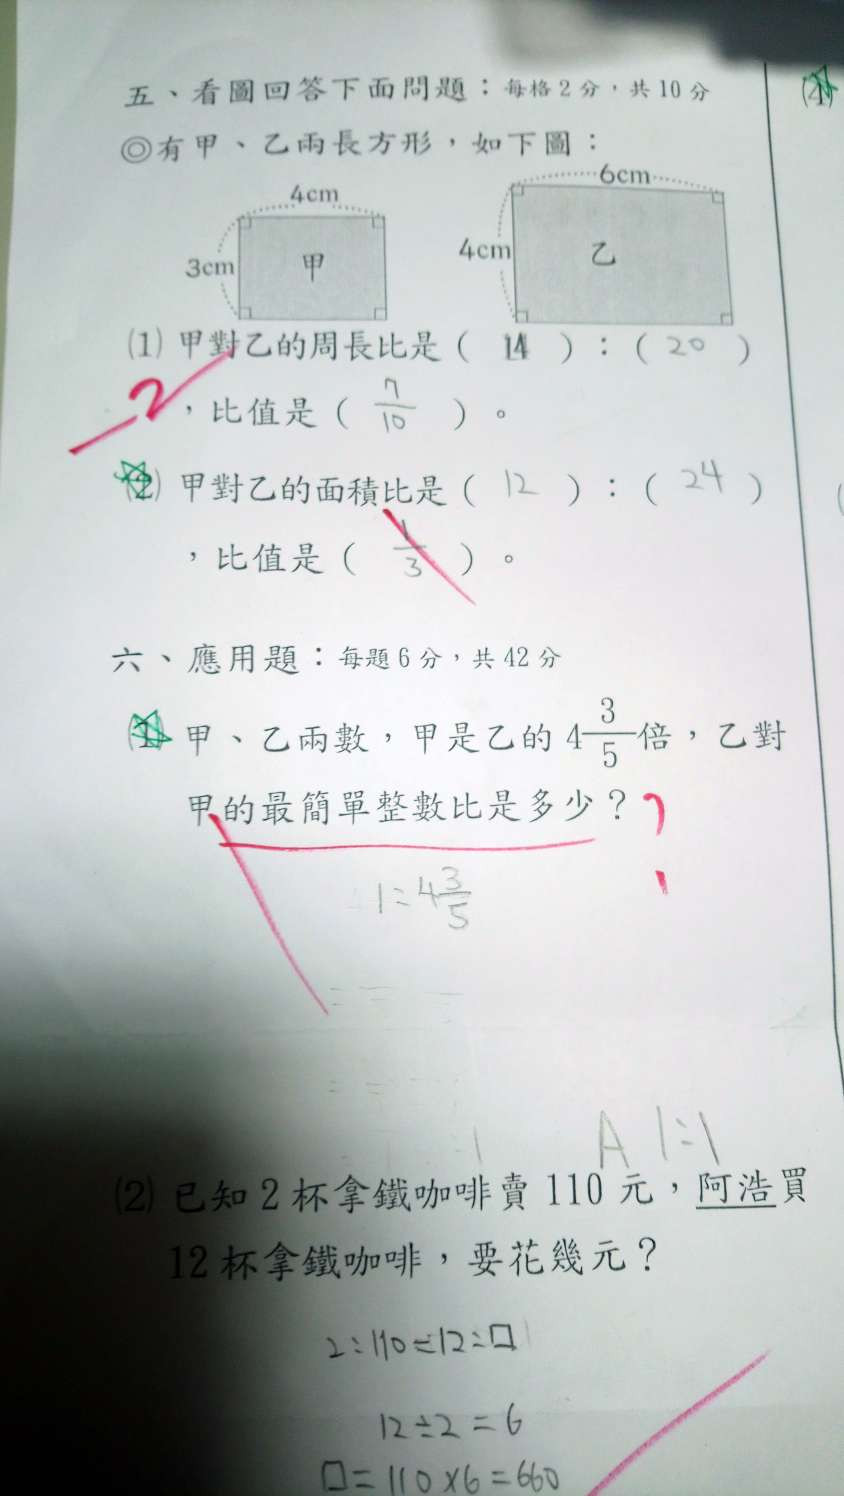 五、看圖回答下面問題：每格2分，共10分
◎有甲、乙兩長方形，如下圖：
4cm
3cm
甲
6cm
4cm
乙
(1) 甲對乙的周長比是（ 14 ）：（ 20 ）
，比值是（ 7/10 ）。
-2
(2) 甲對乙的面積比是（ 12 ）：（ 24 ）
，比值是（ 1/3 ）。
六、應用題：每題6分，共42分
(1) 甲、乙兩數，甲是乙的 4 3/5 倍，乙對
甲的最簡單整數比是多少？?
1:4 3/5
A 1:1
(2) 已知2杯拿鐵咖啡賣110元，阿浩買
12杯拿鐵咖啡，要花幾元？
2:110=12:□
12÷2=6
□=110×6=660
(4)